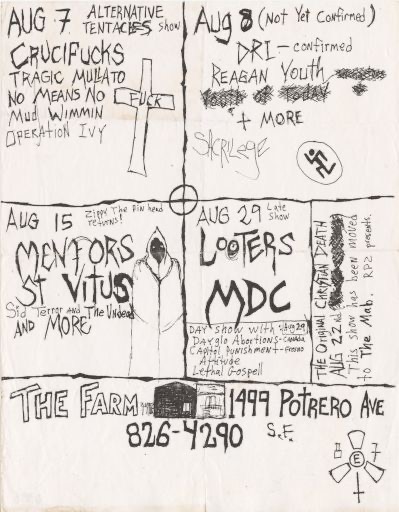 AUG 7 ALTERNATIVE
TENTACLES show
CRUCIFUCKS
TRAGIC MULLATO
NO MEANS NO
MUD WIMMIN
OPERATION IVY
FUCK
Aug 8 (Not Yet Confirmed)
DRI - confirmed
REAGAN YOUTH
+ MORE
SACRILEGE
AUG 15 Zippy The Pinhead
returns!
MENTORS
ST VITUS
Sid Terror and The Undead
AND MORE
AUG 29 Late
show
LOOTERS
MDC
DAY show with Aug 29
Dayglo Abortions - CANADA
Capitol Punishment - Fresno
Attitude
Lethal Gospell
THE Original Christian Death
AUG 22nd
This show has been moved
to The Mab. RPZ presents.
THE FARM 1499 POTRERO AVE
826-4290 S.F.
8 E 7